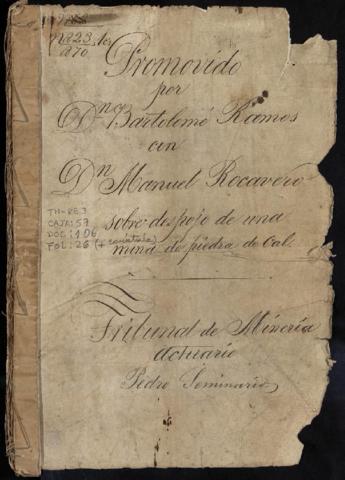 Nº 23, 1er
1870
Promovido
por
Dn. Bartolomé Ramos
con
Dn Manuel Rocavero
sobre despojo de una
mina de piedra de Cal.
TM-RE3
CAJA: 57
DOC: 106
FOL: 26 (+ carátula)
Tribunal de Minería
Actuario
Pedro Seminario